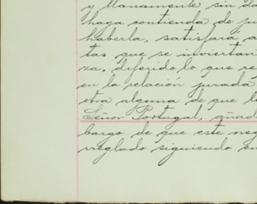 y llanamente sin da
haga contienda de ju
haberla, satisfará a
tas que se inviertan
za, diferido lo que re
en la relación jurada
otra alguna de que l
Señor Portugal, añad
bargo de que este neg
rreglado siguiendo en